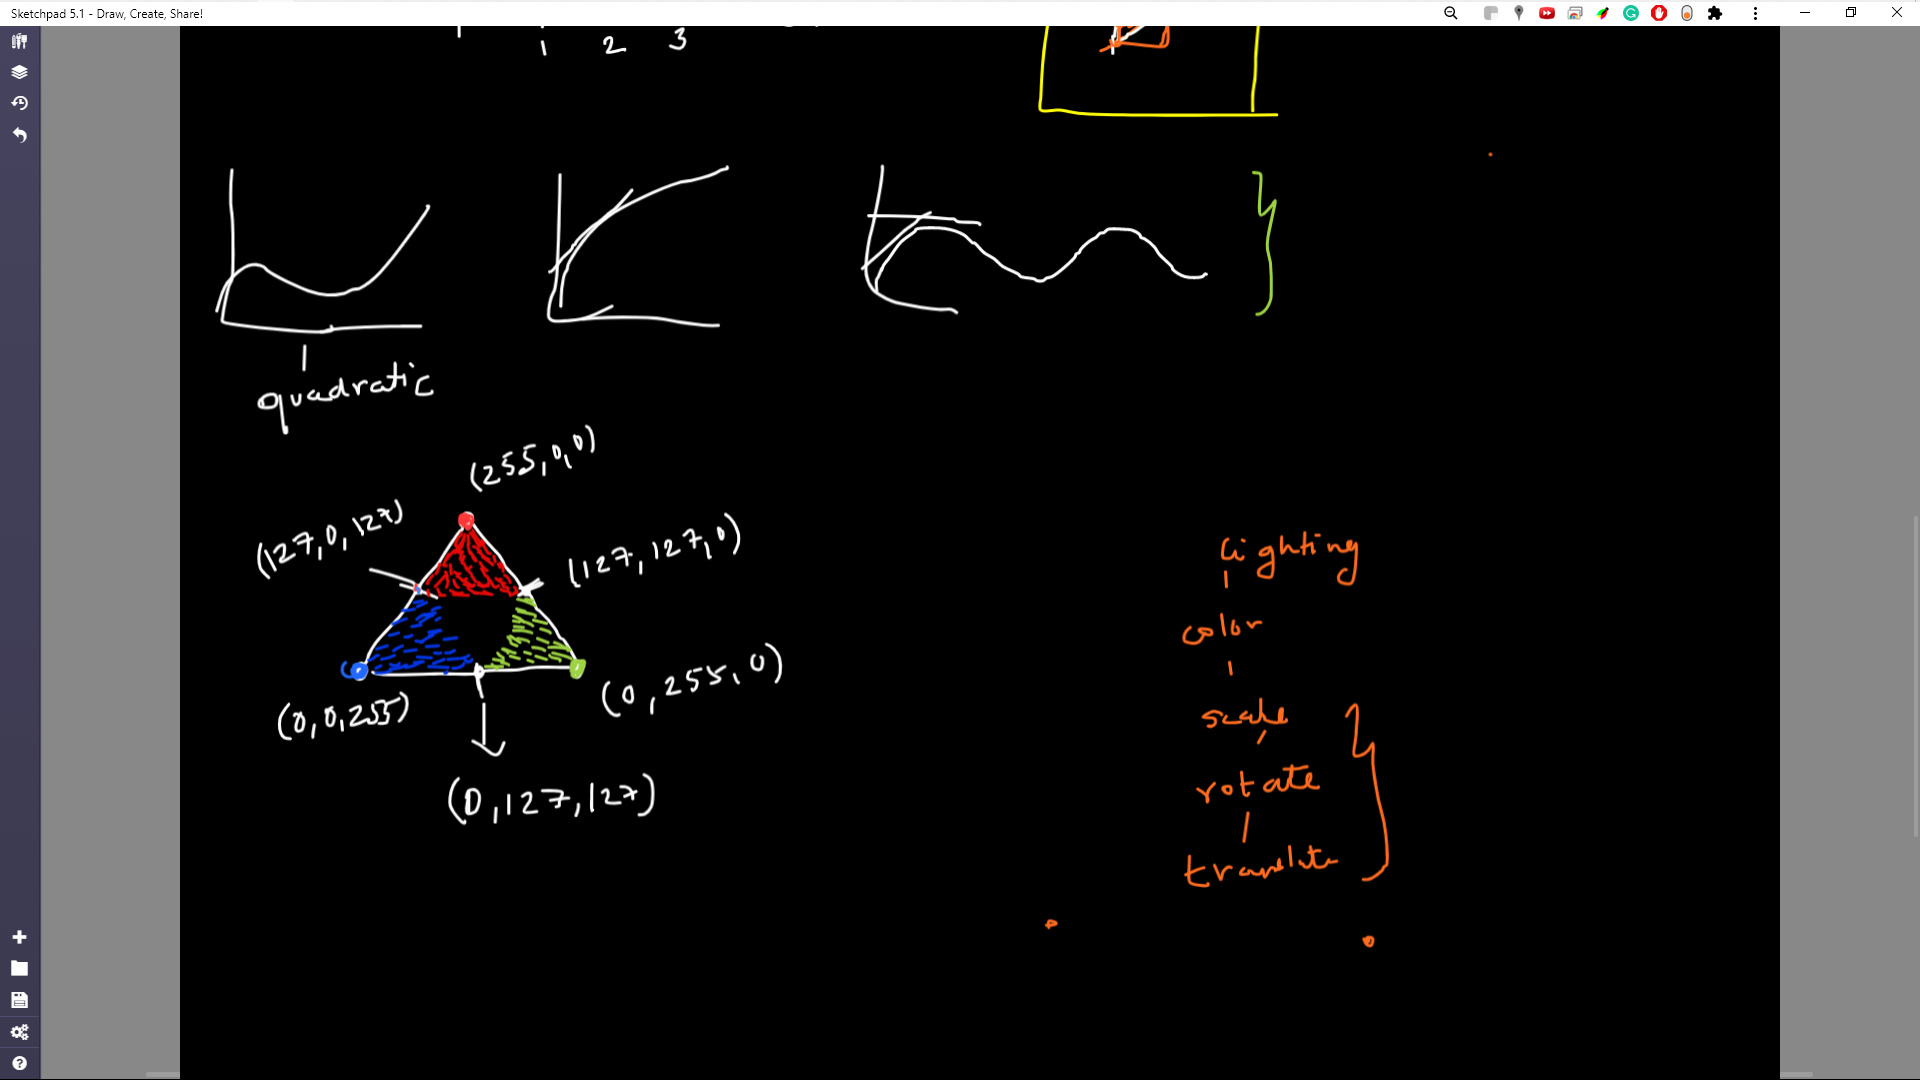 Sketchpad 5.1 - Draw, Create, Share!
1 2 3
quadratic
(255,0,0)
(127,0,127)
(127,127,0)
(0,0,255)
(0,255,0)
(0,127,127)
lighting
color
scale
rotate
translate